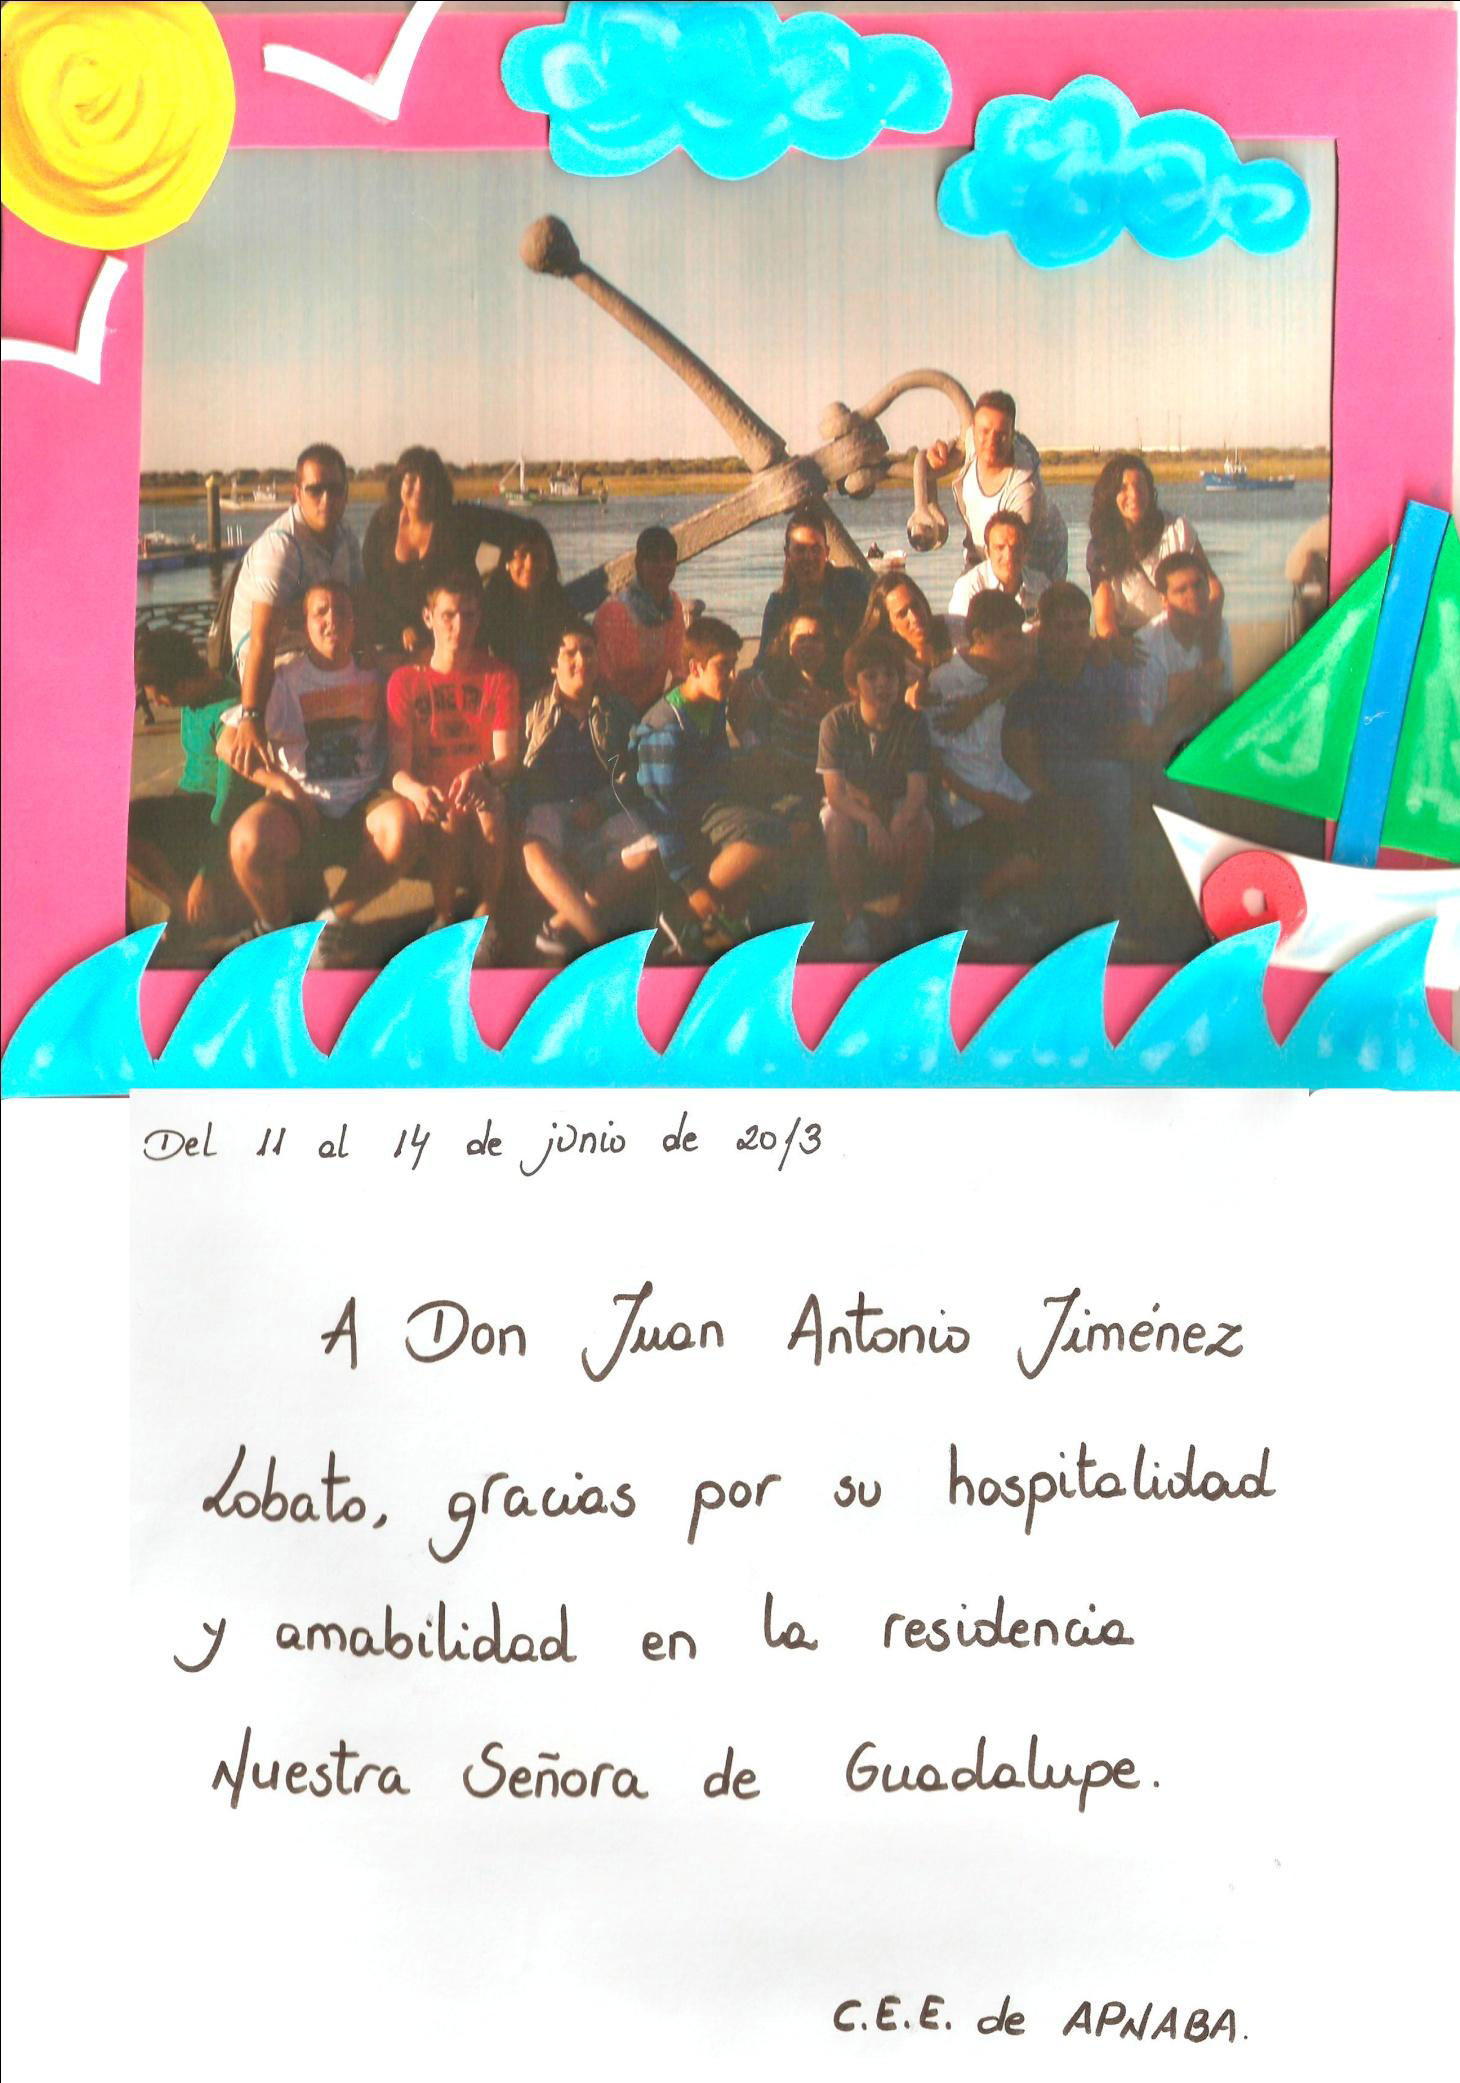 Del 11 al 14 de junio de 2013
A Don Juan Antonio Jiménez
Lobato, gracias por su hospitalidad
y amabilidad en la residencia
Nuestra Señora de Guadalupe.
C.E.E. de APNABA.